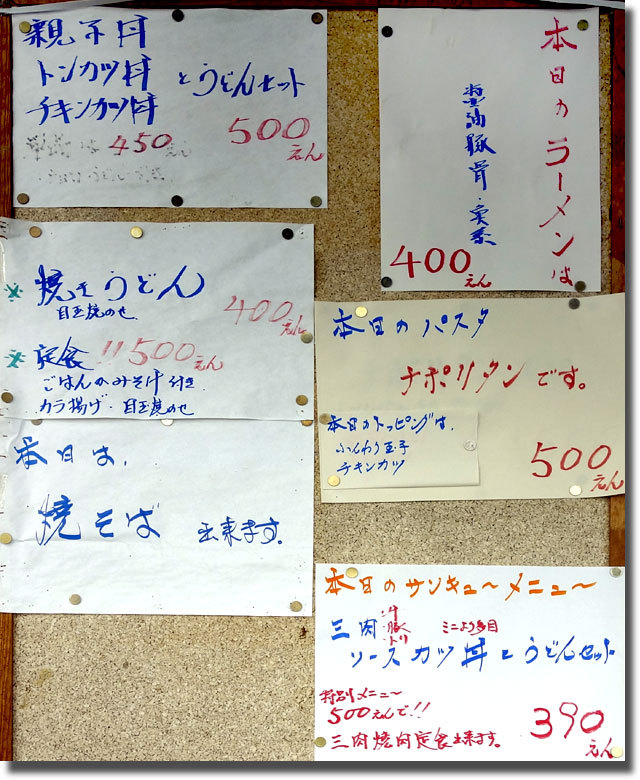 親子丼
トンカツ丼
チキンカツ丼
とうどんセット
450えん
500えん
本日のラーメンは
醤油豚骨・
400えん
焼きうどん
目玉焼のせ
400えん
定食!!500えん
ごはんかみそ汁付き
カラ揚げ・目玉焼のせ
本日のパスタ
ナポリタンです。
本日のトッピングは、
ふんわり玉子
チキンカツ
500えん
本日は、
焼そば 出来ます。
本日のサンキューメニュー
三肉
牛
豚
トリ
ミニより多目
ソースカツ丼とうどんセット
特別メニュー
500えんで!!
三肉焼肉定食出来ます。
390えん